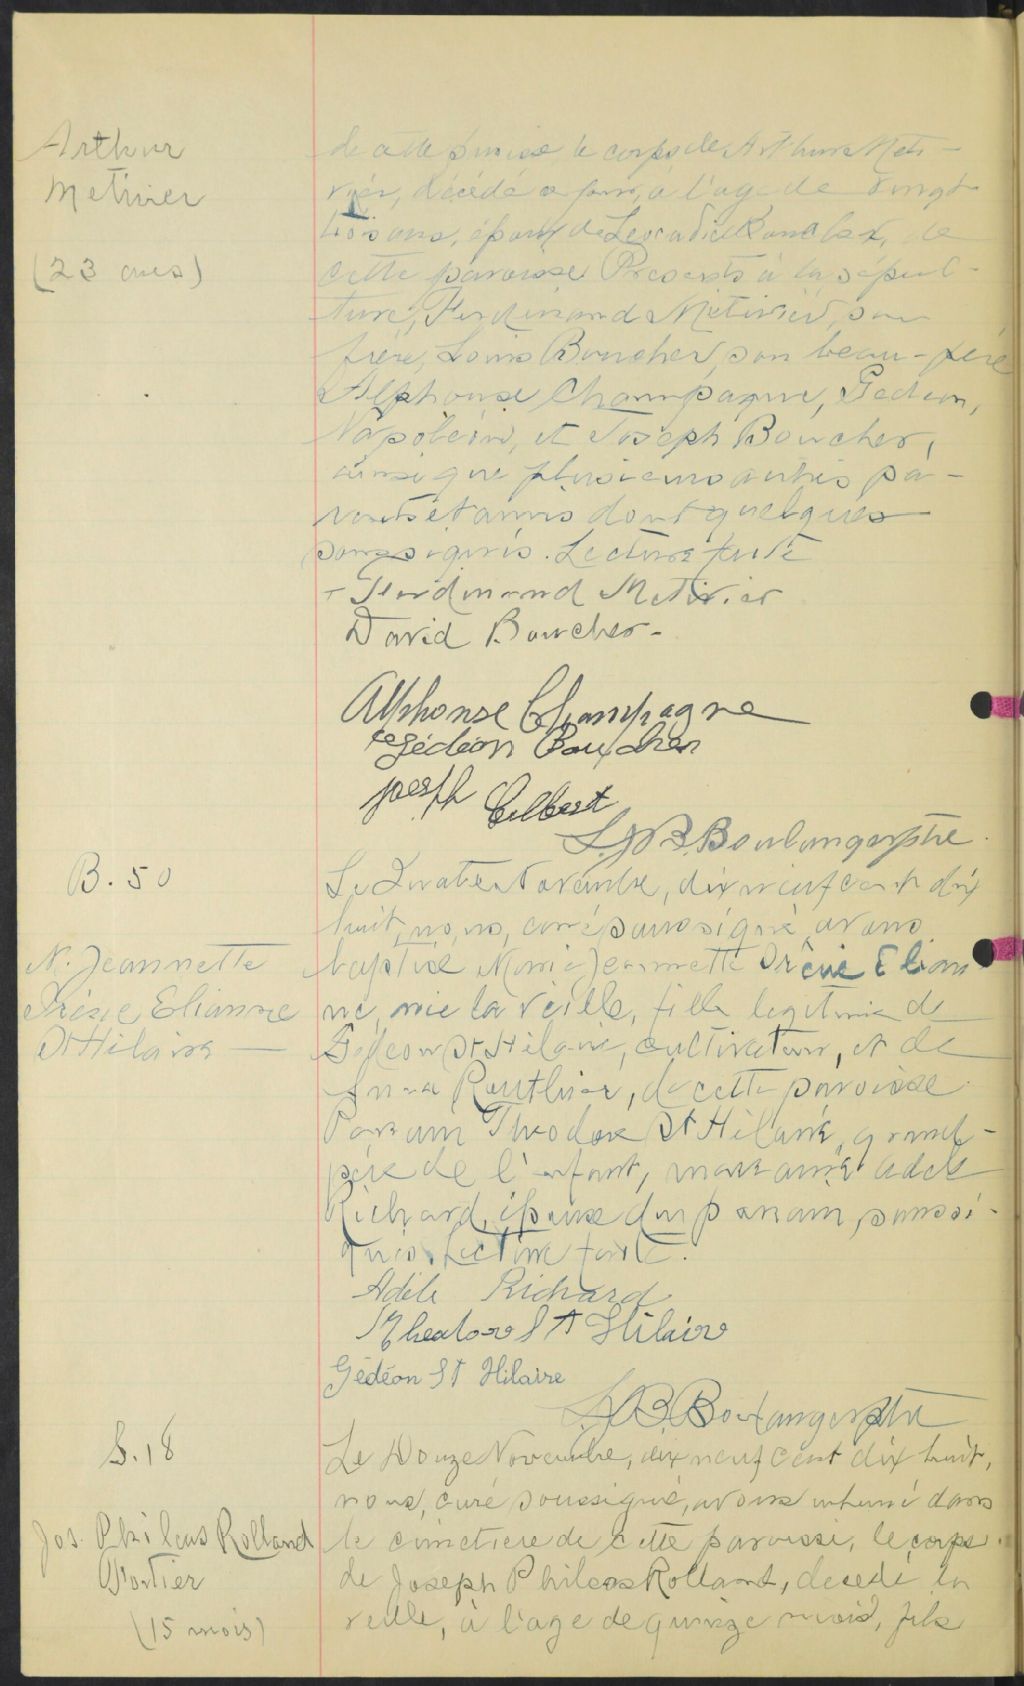 Arthur
Metivier
(23 ans)
de cette paroisse le corps de Arthur Meti-
vier, décédé à l'age de vingt
trois ans, époux de Leocadie de
cette paroisse Presents à la sépul-
ture, Ferdinand Metivier, son
frère, Louis Boucher, son beau-père
Alphonse Champagne, Gedeon,
Napoléon, et Joseph Boucher,
ainsi que plusieurs autres pa-
rents et amis dont quelques
soussignés. Lecture faite
Ferdinand Metivier
David Boucher
Alphonse Champagne
Gédéon Boucher
Joseph Cilbert
L.J.B. Boulanger ptre
B. 50
M. Jeannette
Irène Elianne
St Hilaire
Le Quatre Novembre, dix neuf cent dix
huit, nous, curé soussigné avons
baptisé Marie Jeannette Irène Elian-
ne, née la veille, fille legitime de
Gédéon St Hilaire, cultivateur, et de
Anna Routhier, de cette paroisse.
Parrain Theodore St Hilaire, grand-
père de l'enfant, marraine Adele
Richard, épouse du parrain, soussi-
gnés. Lecture faite.
Adèle Richard
Theodore St Hilaire
Gédéon St Hilaire
L.J.B. Boulanger ptre
S. 18
Jos. Phileas Rolland
Fortier
(15 mois)
Le Douze Novembre, dix neuf cent dix huit,
nous, curé soussigné, avons inhumé dans
le cimetiere de cette paroisse, le corps
de Joseph Phileas Rolland, decedé la
veille, à l'age de quinze mois, fils